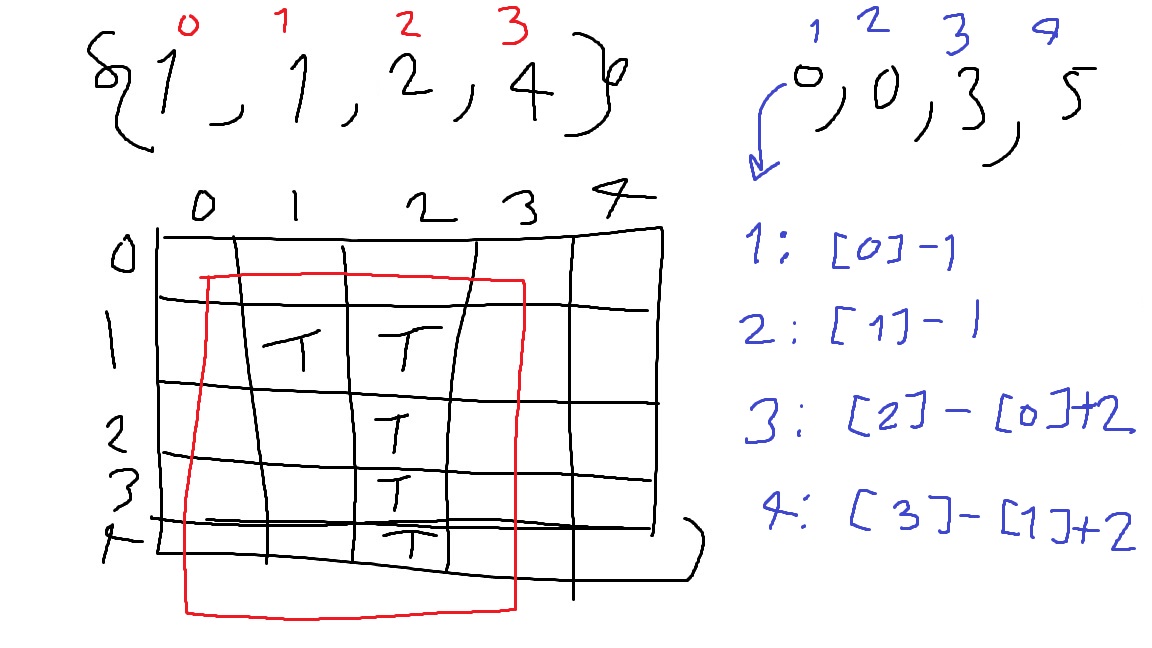 0 1 2 3
{1, 1, 2, 4}
1 2 3 4
0, 0, 3, 5
0 1 2 3 4
0
1 T T
2 T
3 T
4 T
1: [0]-1
2: [1]-1
3: [2]-[0]+2
4: [3]-[1]+2